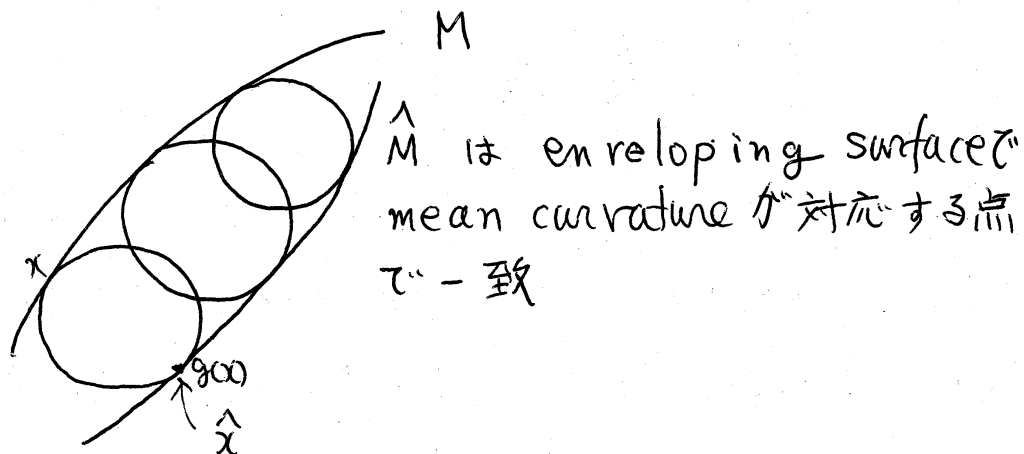 M
M̂ は enveloping surfaceで
mean curvature が対応する点
で一致
x
g(x)
x̂